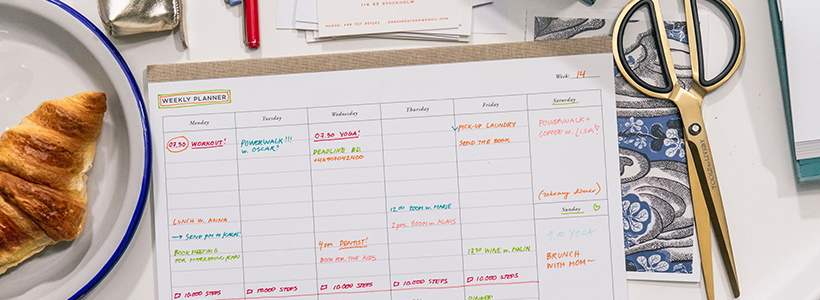 114 53 STOCKHOLM
Week: 14
WEEKLY PLANNER
Monday
Tuesday
Wednesday
Thursday
Friday
Saturday
07.30 WORKOUT!
POWERWALK!!!
W. OSCAR!
07.30 YOGA!
DEADLINE BD.
PICK-UP LAUNDRY
SEND THE BOOK
POWERWALK +
COFFEE W. LISA
(Takeaway dinner)
LUNCH W. ANNA
→ SEND PM TO
BOOK MEETING
FOR MARKETING PLAN
4 PM DENTIST!
BOOK FOR THE KIDS
12.00 ZOOM W. MARIE
2 pm. ZOOM W.
17.30 WINE W. MALIN
Sunday
9.00 YOGA
BRUNCH
WITH MOM
10.000 STEPS
10.000 STEPS
10.000 STEPS
10.000 STEPS
10.000 STEPS
DINNER